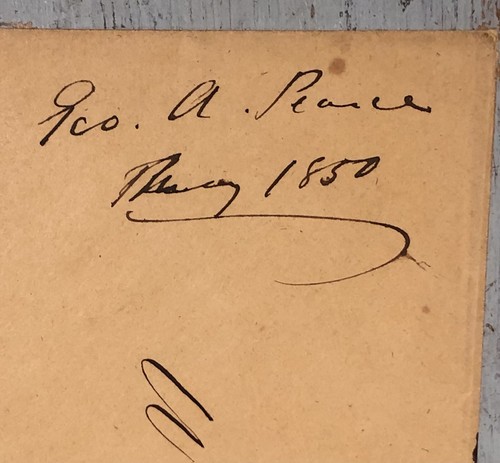 Geo. A. Pearce
1850